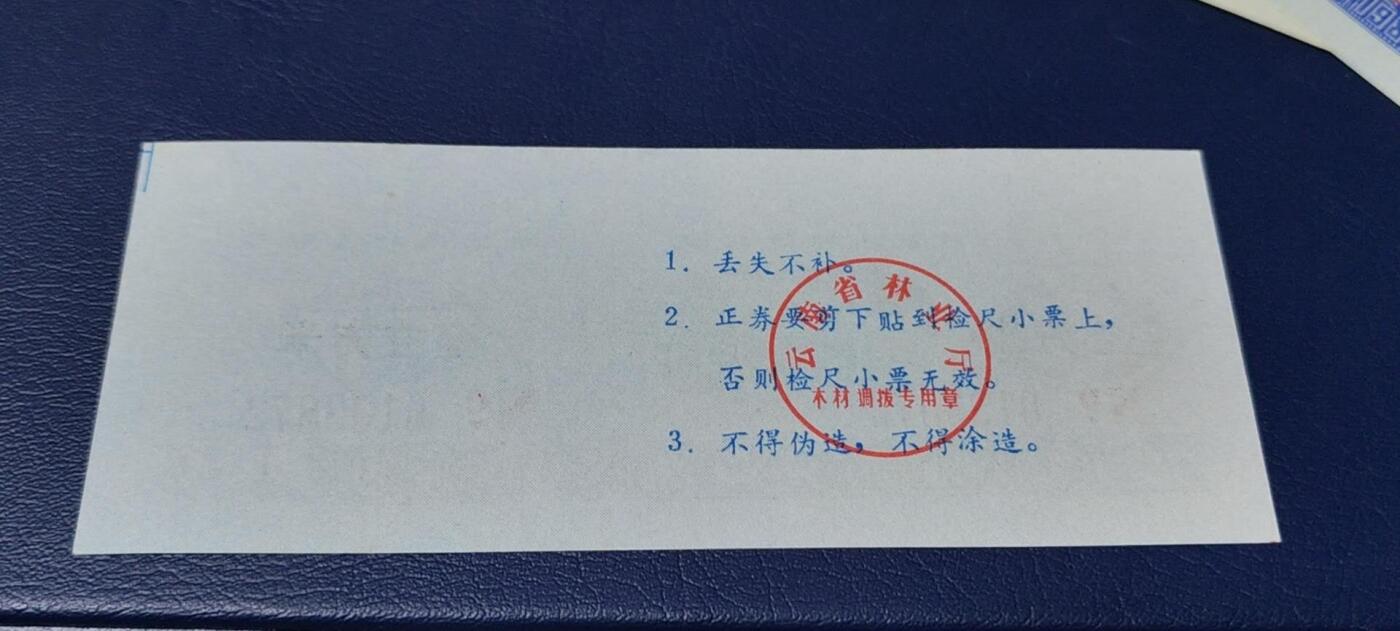 1. 丢失不补。
2. 正券要剪下贴到检尺小票上，
否则检尺小票无效。
3. 不得伪造，不得涂造。
云南省林业厅
木材调拨专用章